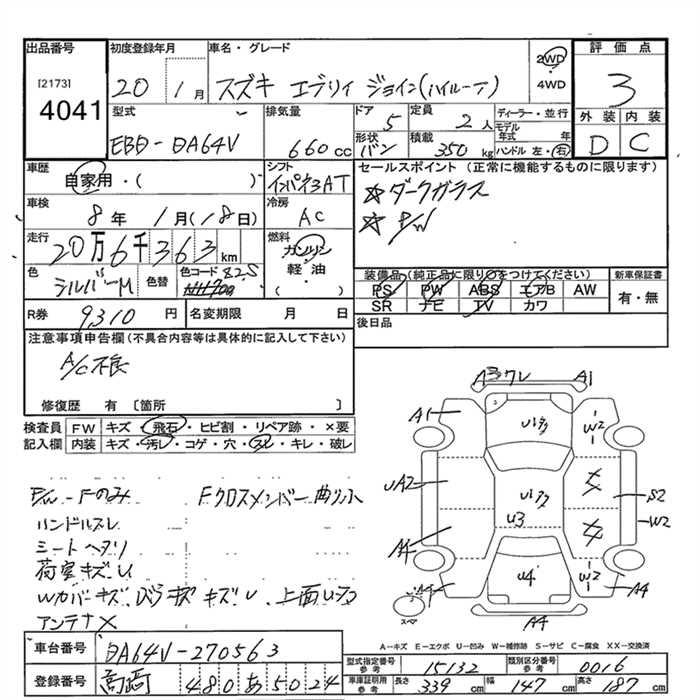 出品番号 初度登録年月 車名・グレード 2WD 評価点
[2173] 20 1月 スズキ エブリイ ジョイン(ハイルーフ) 4WD 3
4041
型式 排気量 ドア 定員 ディーラー・並行 外装 内装
EBD-DA64V 660cc 5 2人 モデル年式 年 D C
形状 バン 積載 350kg ハンドル 左・右
車歴 シフト セールスポイント (正常に機能するものに限ります)
自家用・( ) インパネ3AT ☆ダークガラス
車検 冷房 ☆P/W
8年 1月(18日) AC
走行 燃料
20万6千363km ガソリン
軽油
( )
色 シルバーM 色替 色コード 82S
装備品(純正品に限り○をつけてください) 新車保証書
PS PW ABS エアB AW 有・無
SR ナビ TV カワ
R券 9310円 名変期限 月 日 後日品
注意事項申告欄(不具合内容等は具体的に記入して下さい)
A/C不良
修復歴 有 〔箇所 〕
検査員 FW キズ・飛石・ヒビ割・リペア跡・×要
記入欄 内装 キズ・汚レ・コゲ・穴・スレ・キレ・破レ
P/W-Fのみ Fクロスメンバー曲り小
ハンドルスレ
シートヘタリ
荷室キズU
Wカバーキズ キズU、上面
アンテナ×
A3ワレ A1
A1 U177 W2
UA2 U177 S2
U3 W2
A4
U4 W2
A4 A4
スペア A4
A-キズ E-エクボ U-凹み W-補修跡 S-サビ C-腐食 XX-交換済
車台番号 DA64V-270563
登録番号 高崎 480あ5024
型式指定番号 参考 15132 類別区分番号 参考 0016
車庫証明用 参考 長さ 339cm 幅 147cm 高さ 187cm